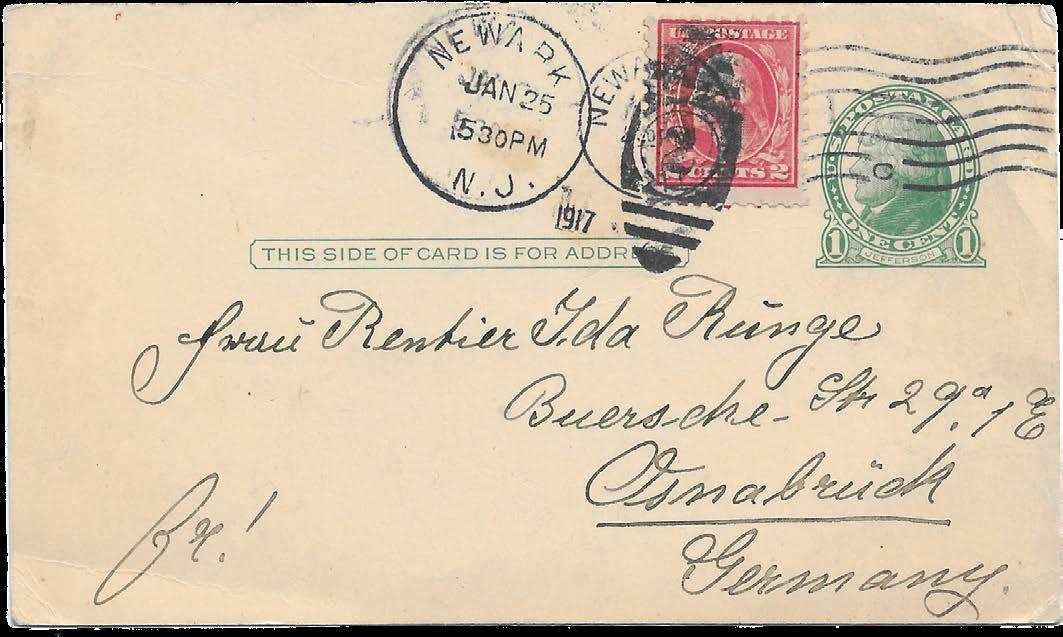 NEWARK
JAN 25
530PM
N.J.
1917
NEWA
U.S. POSTAGE
2 CENTS 2
U.S. POSTAL CARD
1 ONE CENT 1
JEFFERSON
THIS SIDE OF CARD IS FOR ADDRE
Frau Rentier Ida Runge
Buersche-Str 29a, 1 E
Osnabrück
Germany.